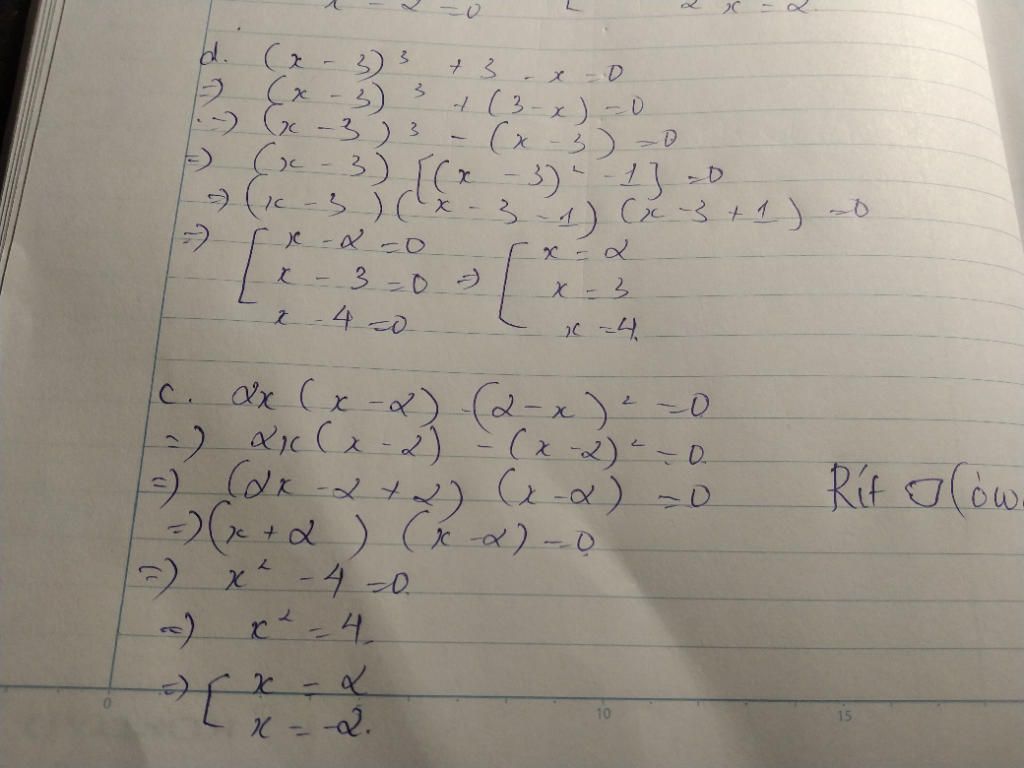 x - 2 = 0 [ 2x = 2
d. (x - 3)³ + 3 - x = 0
=> (x - 3)³ + (3 - x) = 0
=> (x - 3)³ - (x - 3) = 0
=> (x - 3) [(x - 3)² - 1] = 0
=> (x - 3) (x - 3 - 1) (x - 3 + 1) = 0
=> [ x - 2 = 0 [ x = 2
x - 3 = 0 => x = 3
x - 4 = 0 x = 4.
c. 2x (x - 2) - (2 - x)² = 0
=> 2x (x - 2) - (x - 2)² = 0
=> (2x - 2 + 2) (x - 2) = 0
Rít
=> (x + 2) (x - 2) = 0
=> x² - 4 = 0
=> x² = 4
=> [ x = 2
x = -2.
0 10 15